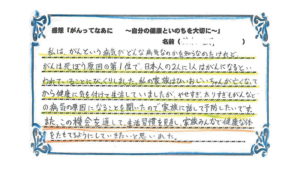 感想「がんってなあに　～自分の健康といのちを大切に～」
名前(
私は、がんという病気がどんな病気なのかを知らなかったけれど、
がんは死ぼう原因の第1位で日本人の2人に1人ががんになるとい
われていることにびっくりしました。私の家族はおじいちゃんが亡くなって
から健康に気を付けて生活していましたが、やせすぎ、太りすぎもがんなど
の病気の原因になることを聞いたので、家族に話して予防したいです。
また、この機会を通して、生活習慣を見直し、家族みんなで健康な体
をたもてるようにしていきたいと思いました。